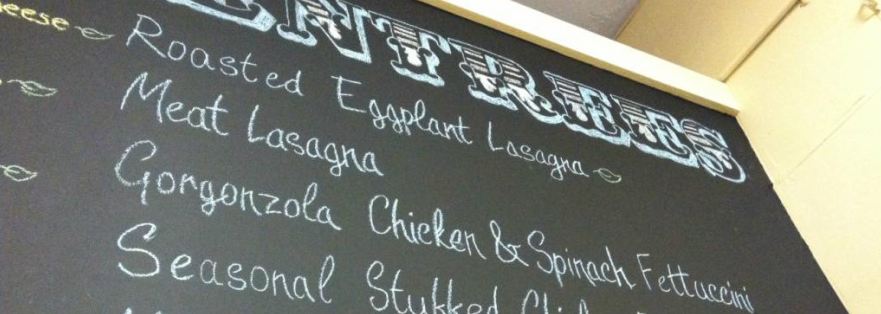 ENTREES
heese
Roasted Eggplant Lasagna
Meat Lasagna
Gorgonzola Chicken & Spinach Fettuccini
Seasonal Stuffed